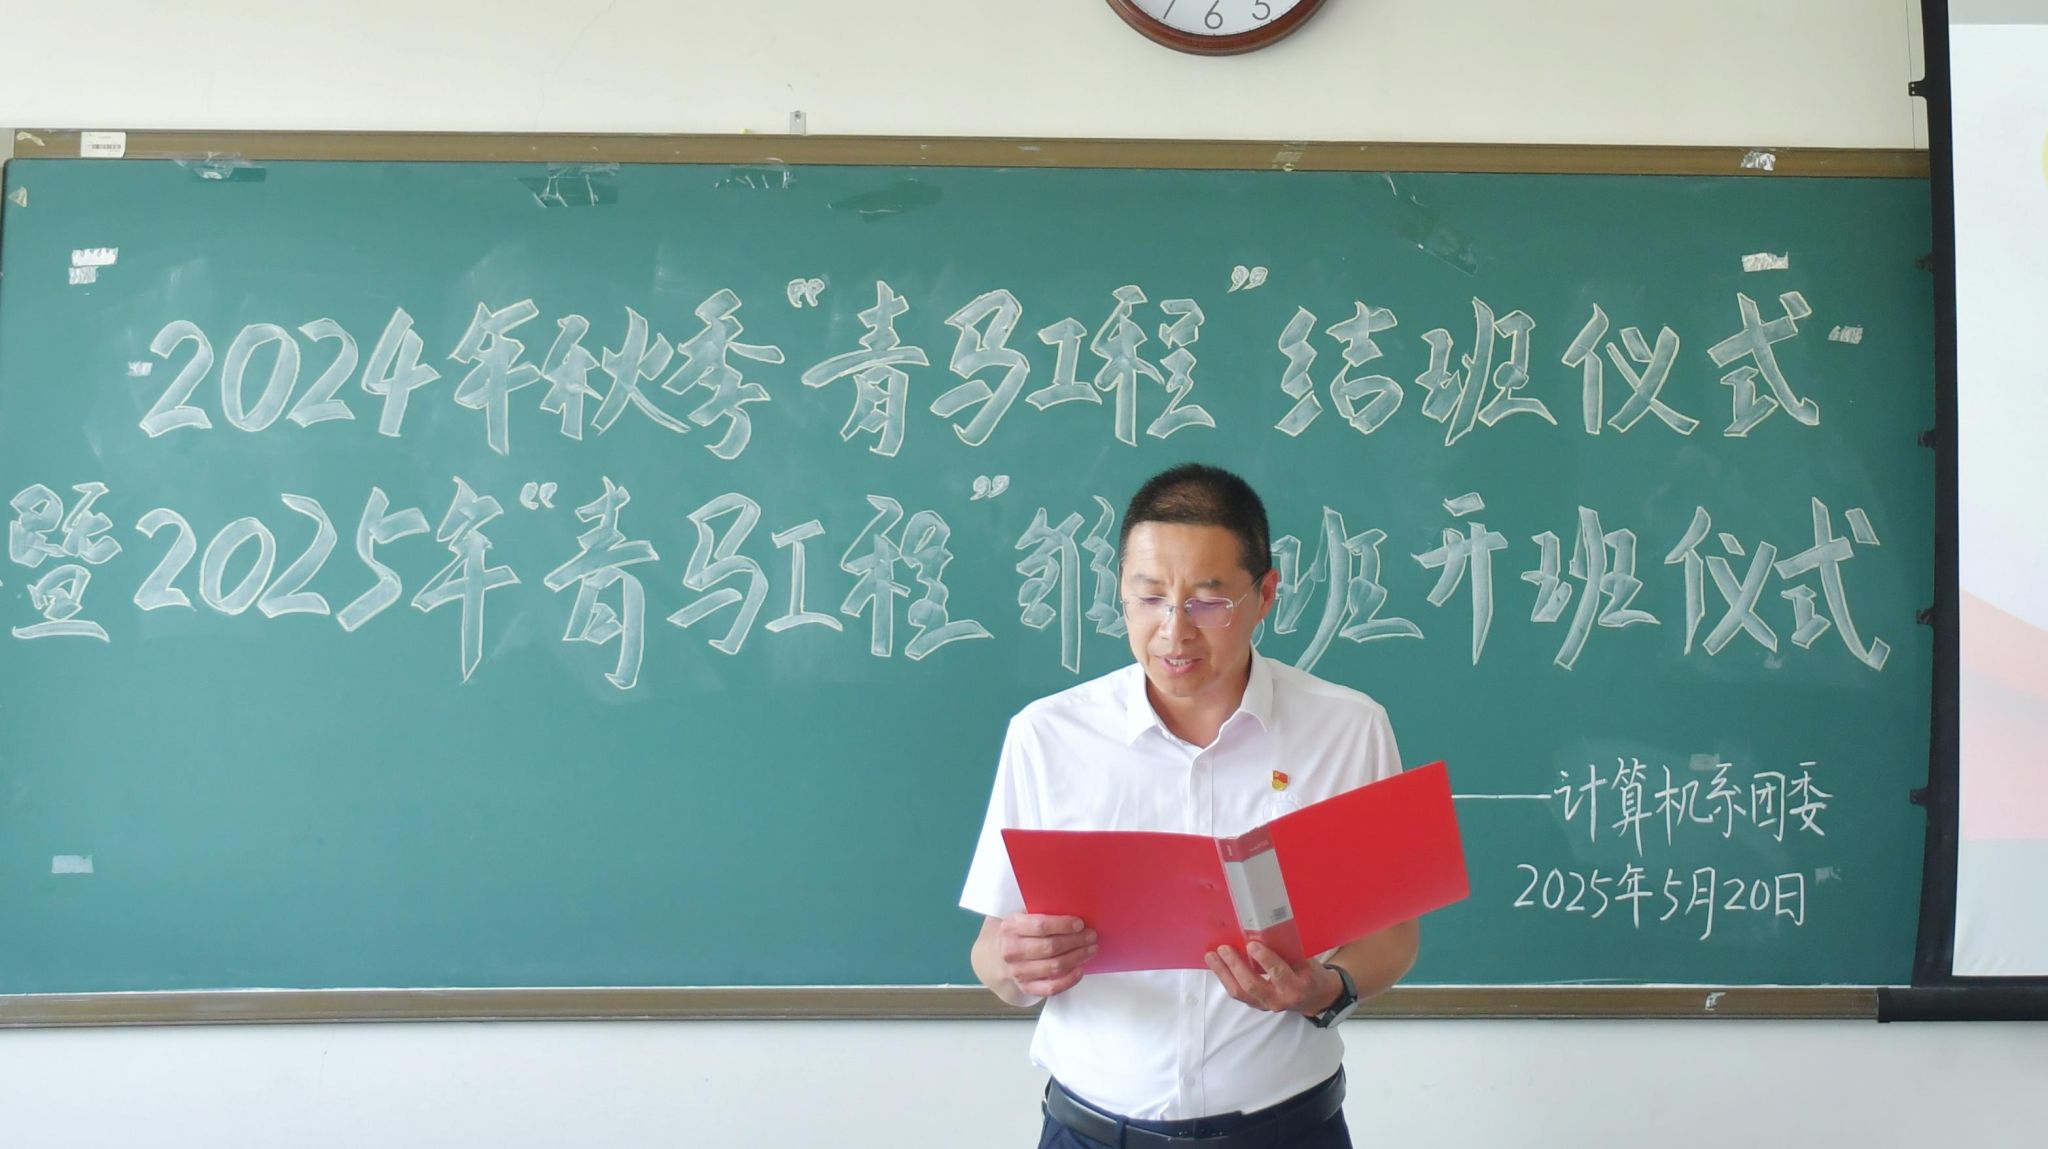 7 6 5
2024年秋季“青马工程”结班仪式
暨2025年“青马工程”雏 班开班仪式
——计算机系团委
2025年5月20日